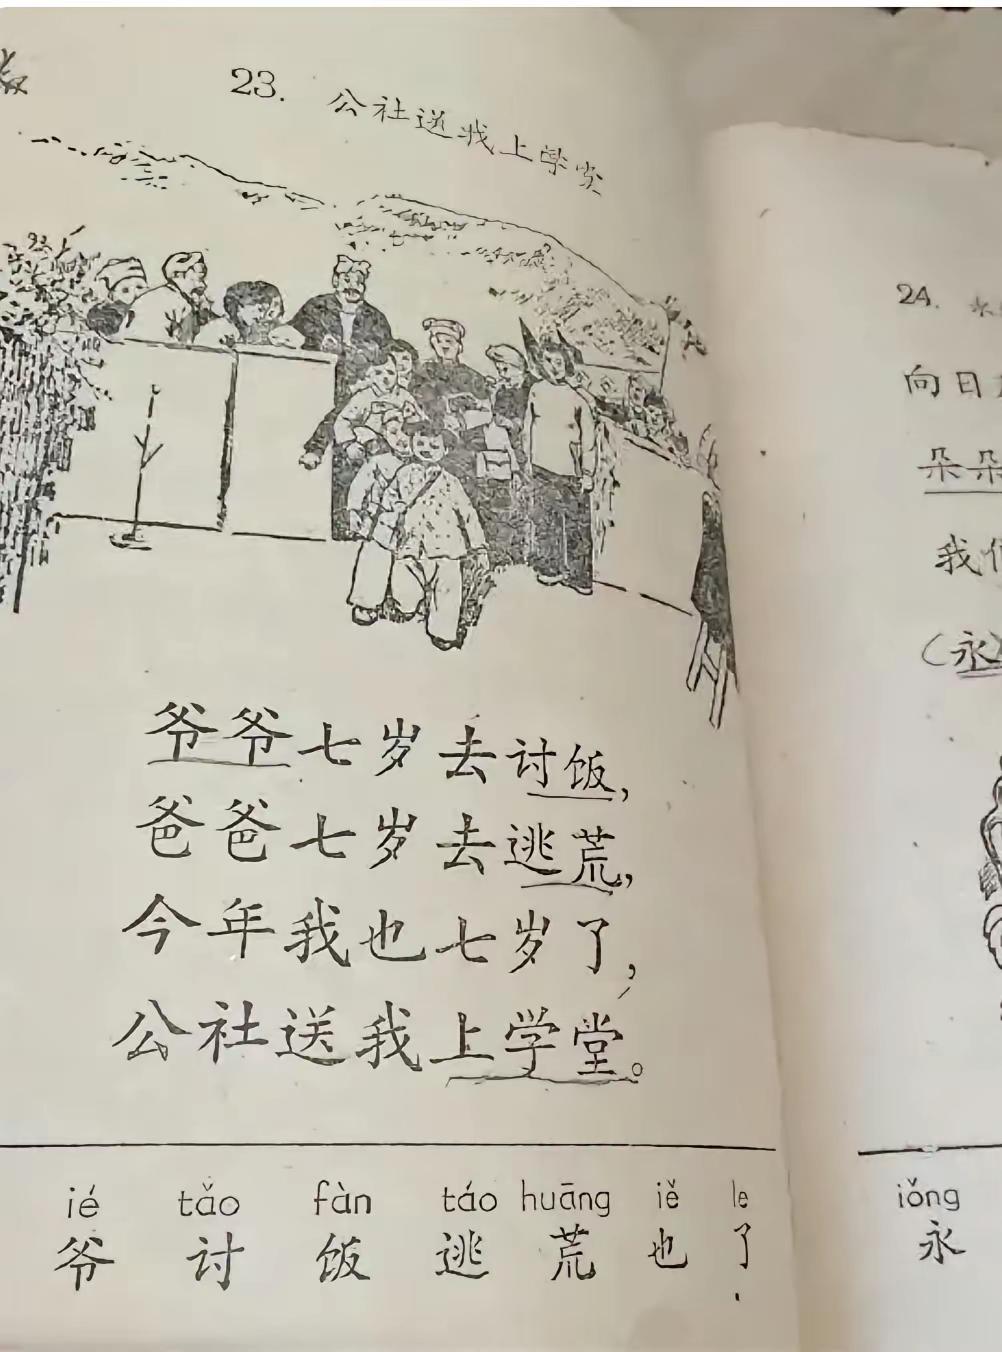 23. 公社送我上学堂
爷爷七岁去讨饭，
爸爸七岁去逃荒，
今年我也七岁了，
公社送我上学堂。
ié tǎo fàn táo huāng iě le
爷 讨 饭 逃 荒 也 了
24.
向日
朵朵
我们
（永
iǒng
永